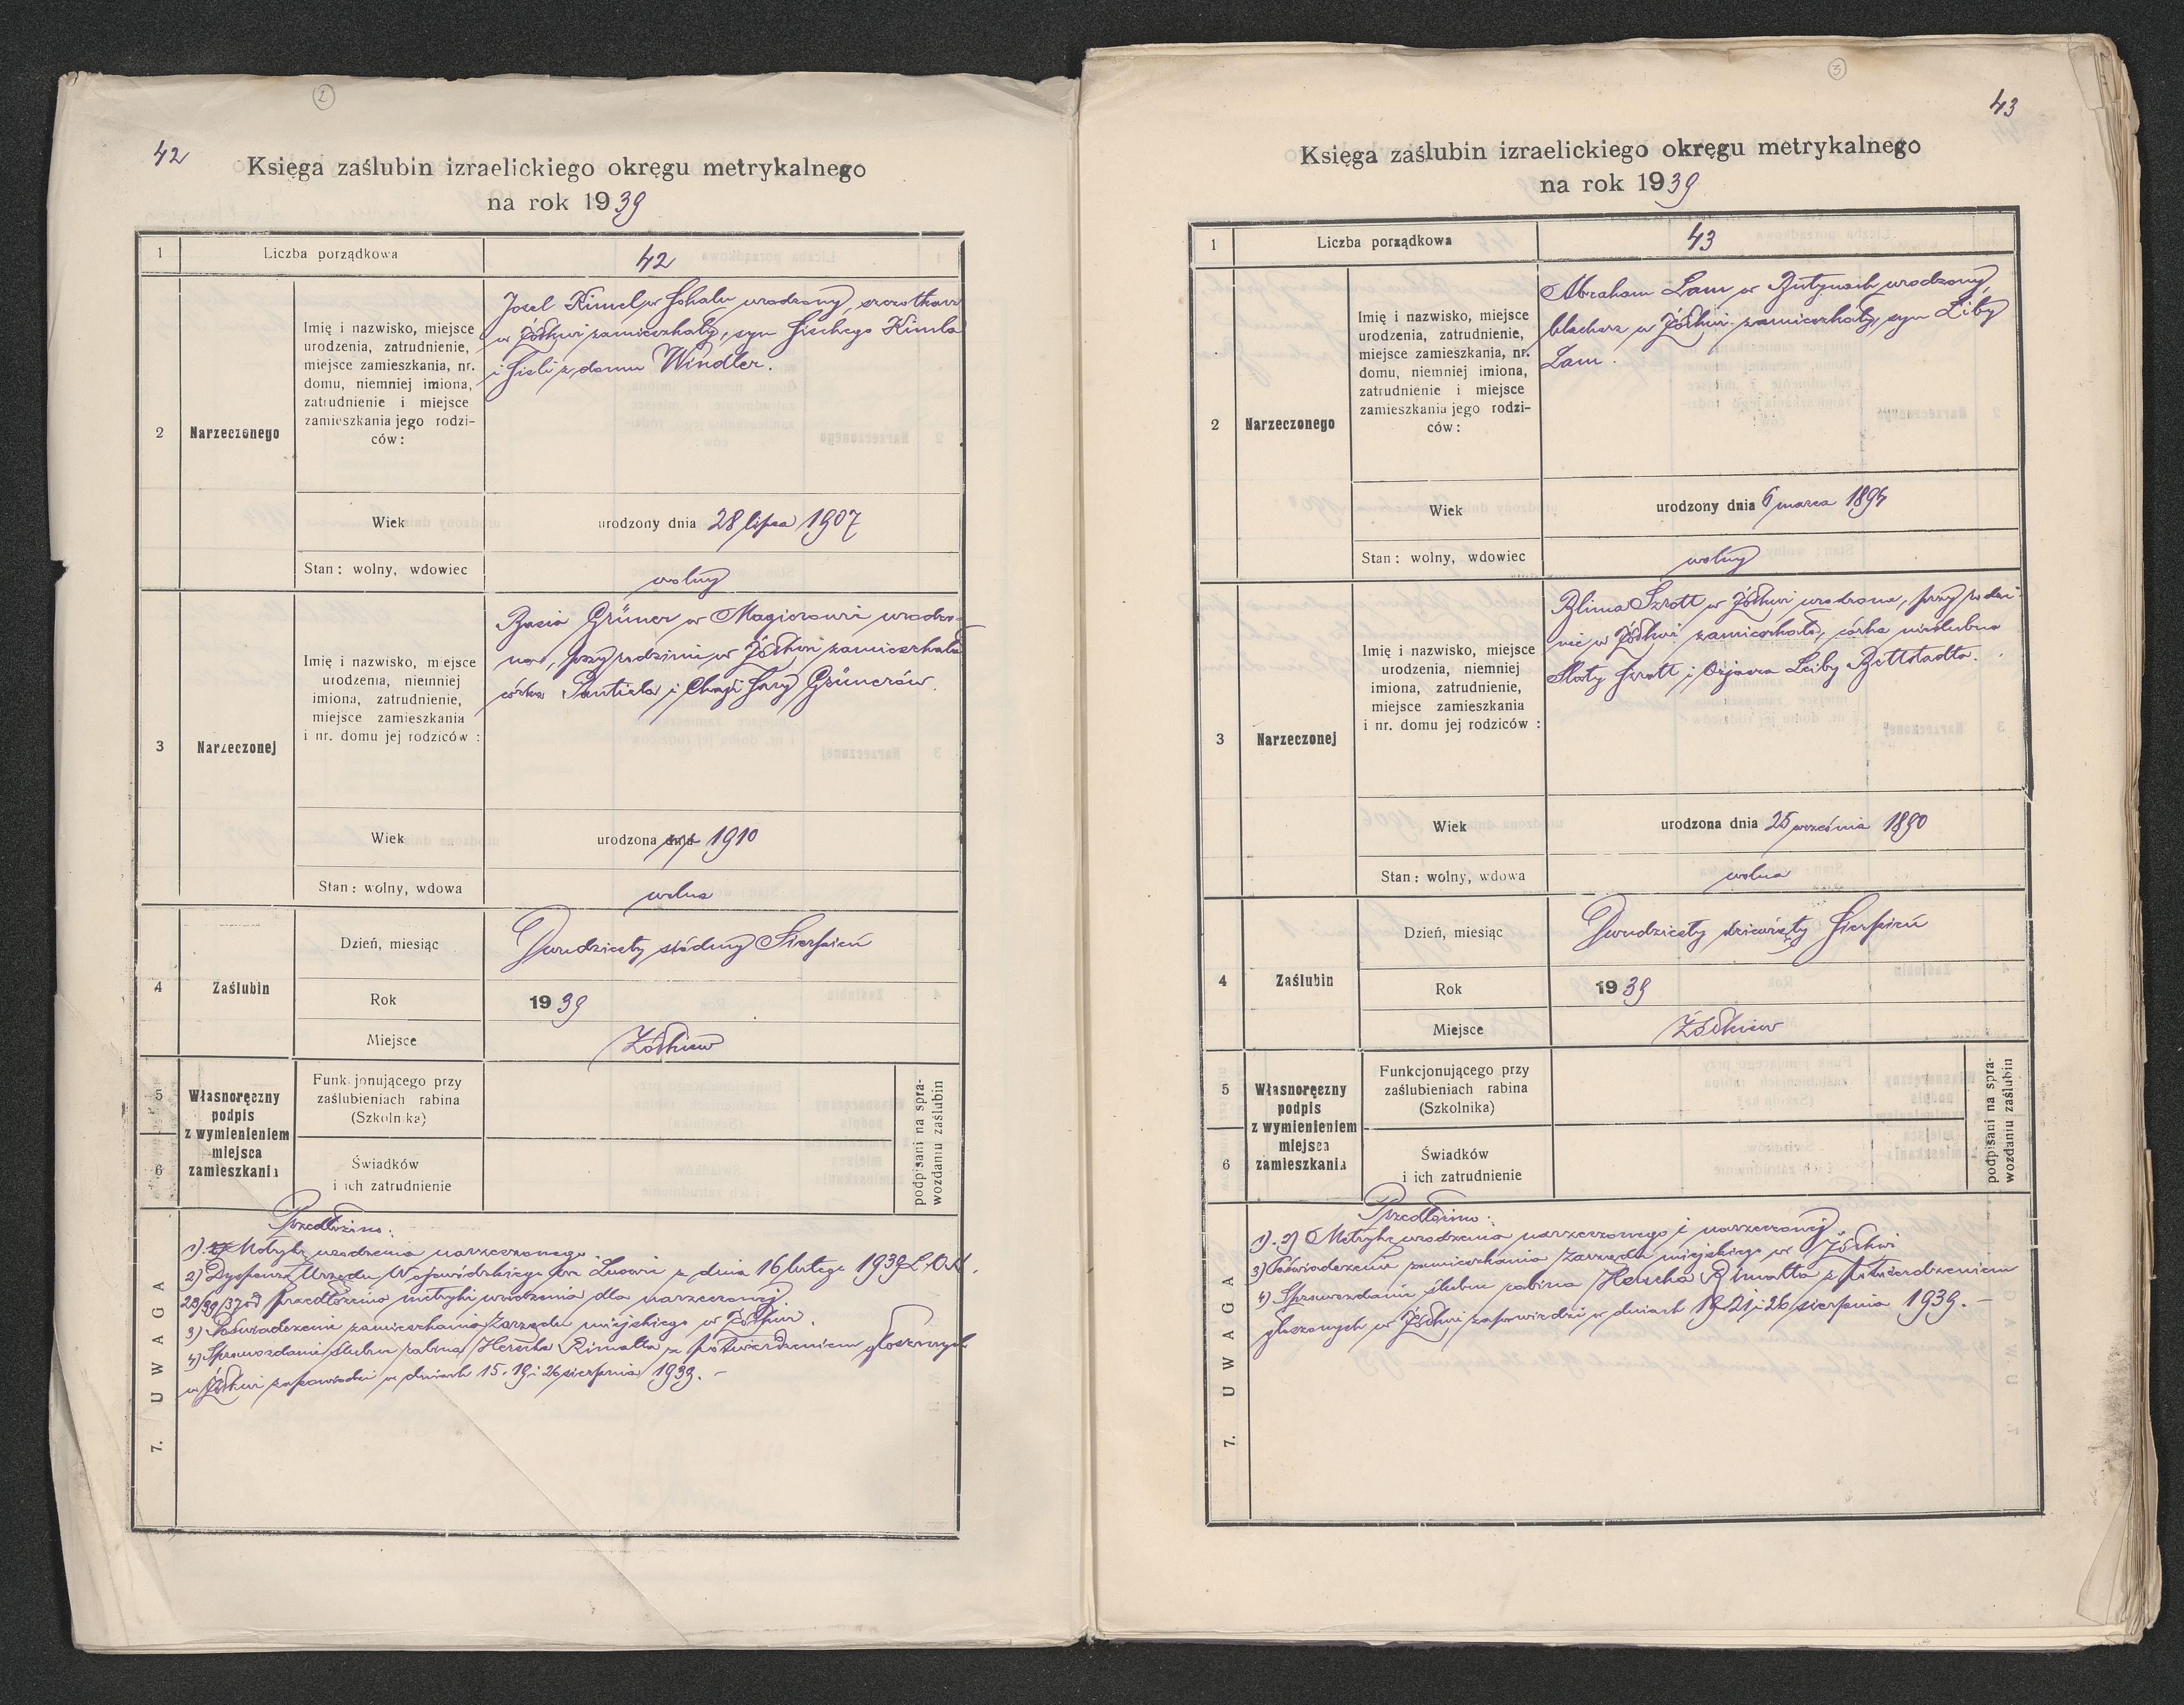 2
42
Księga zaślubin izraelickiego okręgu metrykalnego
na rok 1939
1
Liczba porządkowa
42
2
Narzeczonego
Imię i nazwisko, miejsce
urodzenia, zatrudnienie,
miejsce zamieszkania, nr.
domu, niemniej imiona,
zatrudnienie i miejsce
zamieszkania jego rodzi-
ców:
Josel Kimel w Sokalu urodzony, szczotkarz
w Żółkwi zamieszkały, syn Kimla
i z domu Windler.
Wiek
urodzony dnia 28 lipca 1907
Stan: wolny, wdowiec
wolny
3
Narzeczonej
Imię i nazwisko, miejsce
urodzenia, niemniej
imiona, zatrudnienie,
miejsce zamieszkania
i nr. domu jej rodziców :
Basia Grüner w Magierowie urodzo-
na, przy rodzinie w Żółkwi zamieszkała
córka i Grünerów.
Wiek
urodzona 1910
Stan: wolny, wdowa
wolna
4
Zaślubin
Dzień, miesiąc
Dwudziesty siódmy Sierpień
Rok
1939
Miejsce
Żółkiew
5
6
Własnoręczny
podpis
z wymienieniem
miejsca
zamieszkania
Funkcjonującego przy
zaślubieniach rabina
(Szkolnika)
Świadków
i ich zatrudnienie
podpisani na spra-
wozdaniu zaślubin
7. UWAGA
Przedłożono:
1) Metrykę urodzenia narzeczonego
2) Dyspenzę Urzędu Wojewódzkiego we Lwowie z dnia 16 lutego 1939 L.
od przedłożenia metryki urodzenia dla narzeczonej
3) Poświadczenie zamieszkania Zarządu miejskiego w Żółkwi.
4) Sprawozdanie ślubu rabina Herscha Rimalta z potwierdzeniem głoszonych
w Żółkwi zapowiedzi w dniach 15. 19 i 26 sierpnia 1939. –
3
43
Księga zaślubin izraelickiego okręgu metrykalnego
na rok 1939
1
Liczba porządkowa
43
2
Narzeczonego
Imię i nazwisko, miejsce
urodzenia, zatrudnienie,
miejsce zamieszkania, nr.
domu, niemniej imiona,
zatrudnienie i miejsce
zamieszkania jego rodzi-
ców:
Abraham Lam w Butynach urodzony,
blacharz w Żółkwi zamieszkały, syn Liby
Lam.
Wiek
urodzony dnia 6 marca 1895
Stan: wolny, wdowiec
wolny
3
Narzeczonej
Imię i nazwisko, miejsce
urodzenia, niemniej
imiona, zatrudnienie,
miejsce zamieszkania
i nr. domu jej rodziców :
Blima Szrott w Żółkwi urodzona, przy rodzi-
nie w Żółkwi zamieszkała, córka nieślubna
Słoty Szrott i Ozjasza Leiby Bettstadta.
Wiek
urodzona dnia 25 września 1890
Stan: wolny, wdowa
wolna
4
Zaślubin
Dzień, miesiąc
Dwudziesty dziewiąty Sierpień
Rok
1939
Miejsce
Żółkiew
5
6
Własnoręczny
podpis
z wymienieniem
miejsca
zamieszkania
Funkcjonującego przy
zaślubieniach rabina
(Szkolnika)
Świadków
i ich zatrudnienie
podpisani na spra-
wozdaniu zaślubin
7. UWAGA
Przedłożono:
1). 2) Metrykę urodzenia narzeczonego i narzeczonej
3) Poświadczenie zamieszkania Zarządu miejskiego w Żółkwi
4) Sprawozdanie ślubu rabina Herscha Rimalta z potwierdzeniem
głoszonych w Żółkwi zapowiedzi w dniach 19. 21 i 26 sierpnia 1939. –